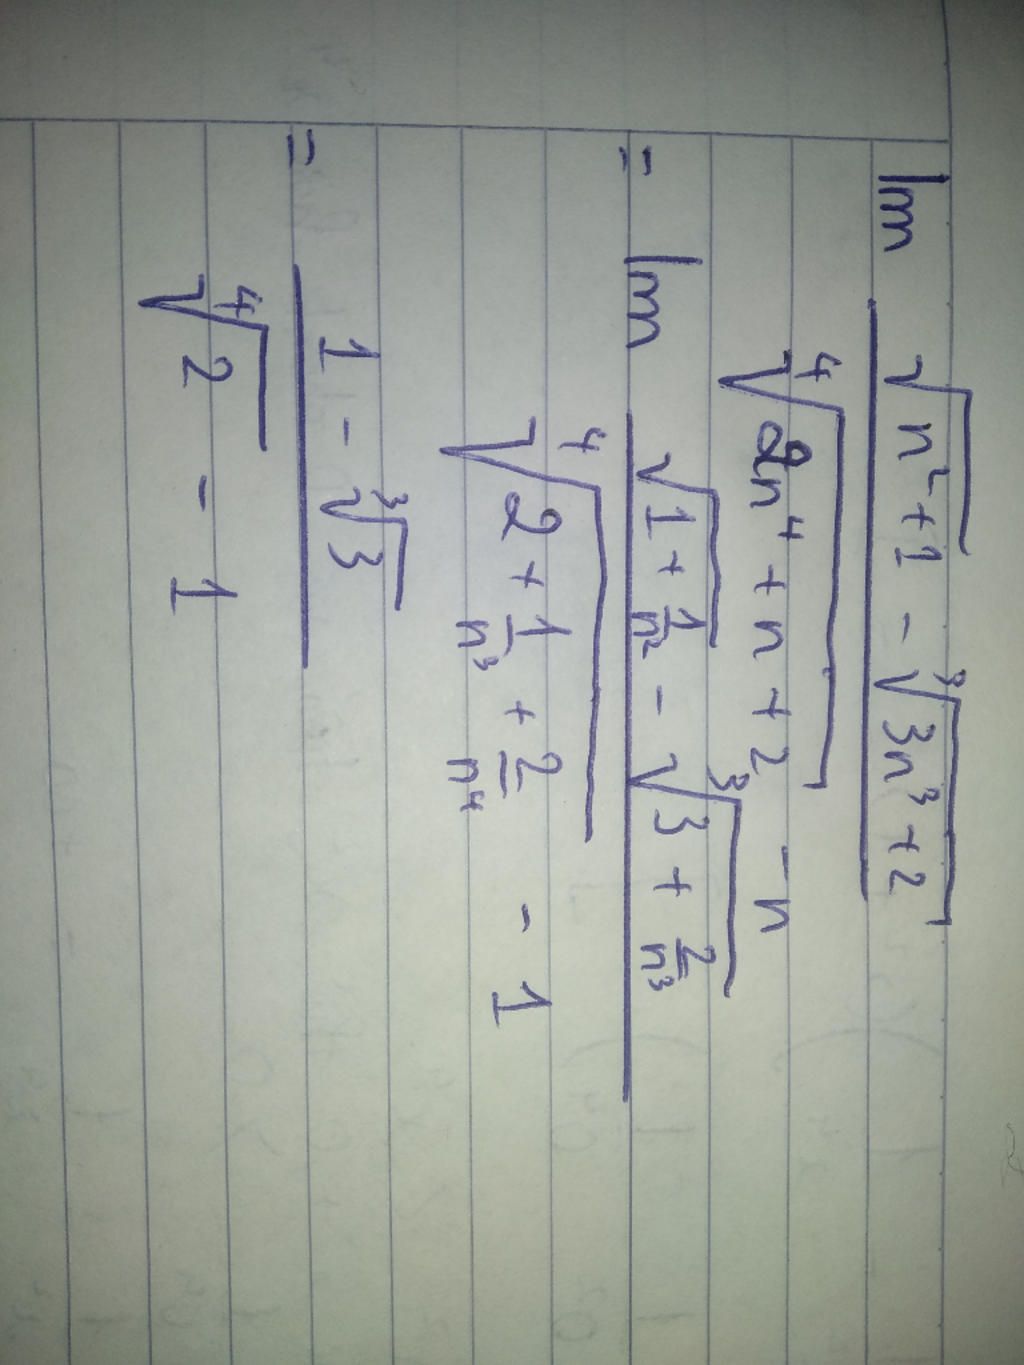 lim √(n²+1) - ∛(3n³+2)
⁴√(2n⁴+n+2) - n
= lim √(1+1/n²) - ∛(3+2/n³)
⁴√(2+1/n³+2/n⁴) - 1
= 1 - ∛3
⁴√2 - 1